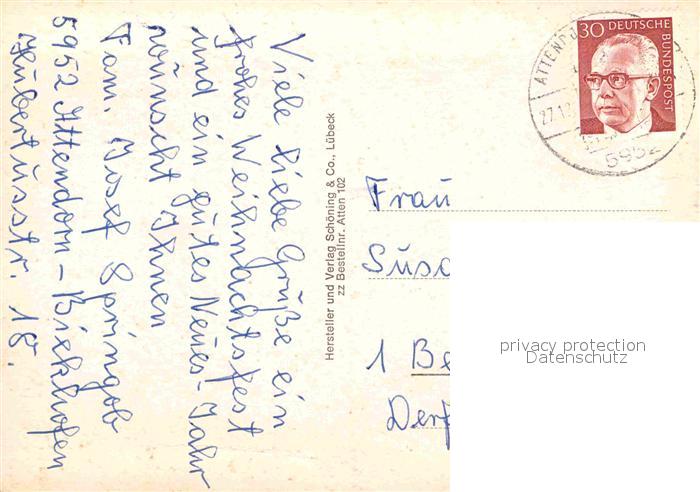 Viele liebe Grüße ein
frohes Weihnachtsfest
und ein gutes Neues-Jahr
wünscht Ihnen
Fam. Josef Springob
5952 Attendorn-Biekhofen
Hubertusstr. 18.
Hersteller und Verlag Schöning & Co., Lübeck
zz Bestellnr. Atten 102
30 DEUTSCHE
BUNDESPOST
ATTENDO
27.12
5952
Frau
Susa
1 Be
Derf
privacy protection
Datenschutz